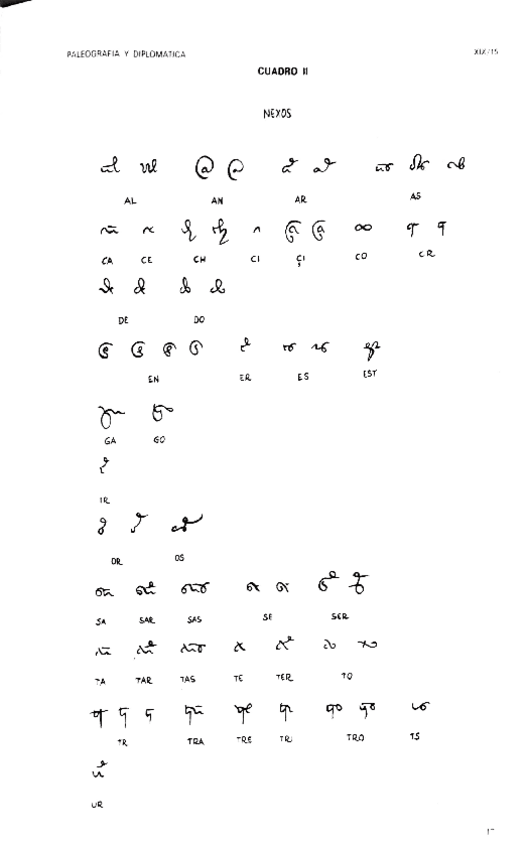 PALEOGRAFIA Y DIPLOMATICA XIX/15
CUADRO II
NEXOS
AL AN AR AS
CA CE CH CI ÇI CO CR
DE DO
EN ER ES EST
GA GO
IR
OR OS
SA SAR SAS SE SER
TA TAR TAS TE TER TO
TR TRA TRE TRI TRO TS
UR